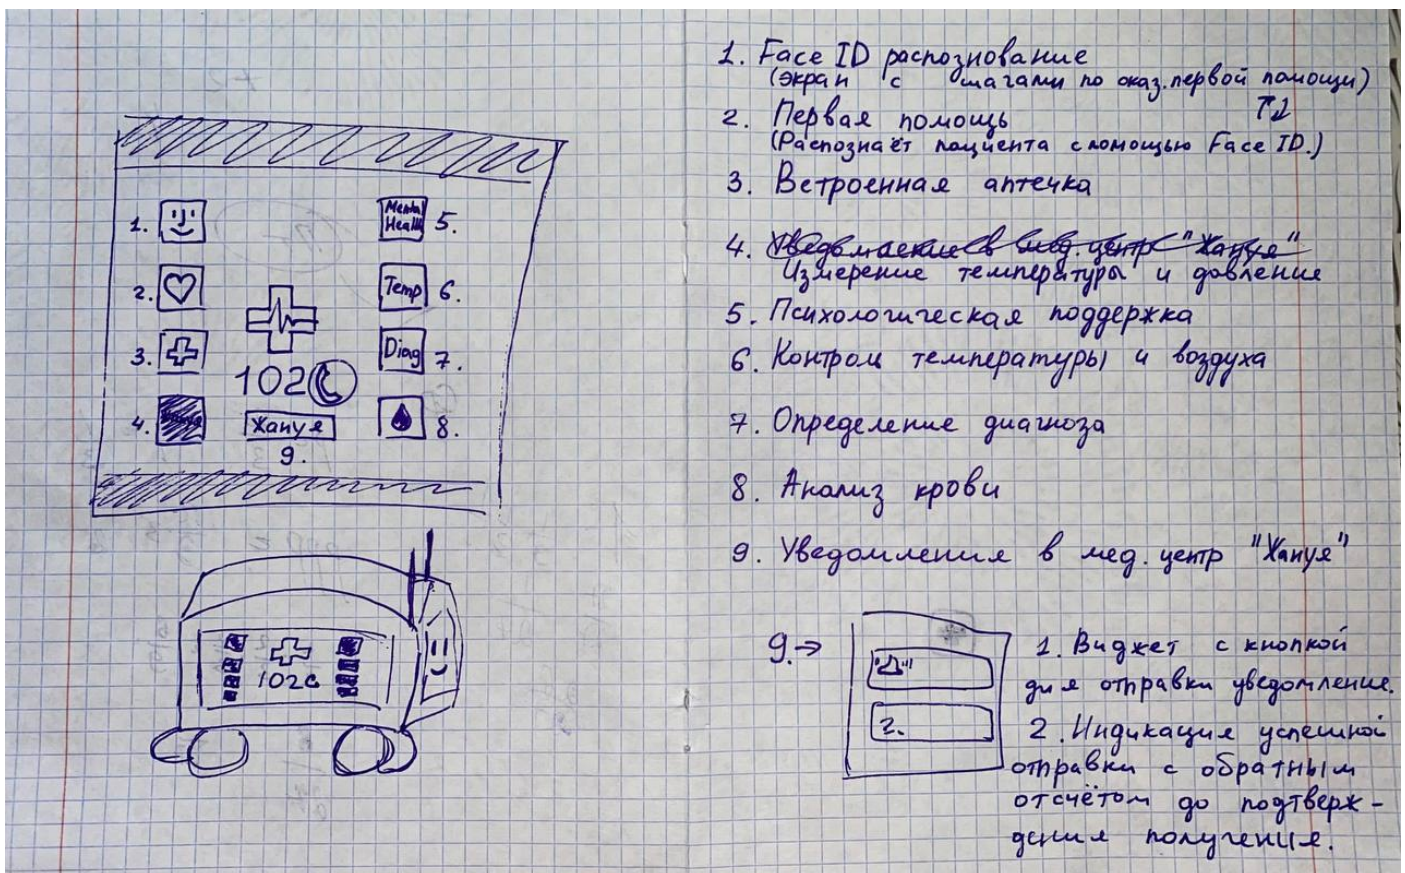 1.
2.
3.
4.
Mental
Health 5.
Temp 6.
Diag 7.
8.
102
Хануя
9.
102
1. Face ID распознование
(экран с шагами по оказ. первой помощи)
2. Первая помощь
(Распознаёт пациента с помощью Face ID.)
3. Встроенная аптечка
4. Уведомление в мед. центр "Хануя"
Измерение температуры и довления
5. Психологическая поддержка
6. Контроль температуры и воздуха
7. Определение диагноза
8. Анализ крови
9. Уведомления в мед. центр "Хануя"
9. →
2.
1. Виджет с кнопкой
для отправки уведомление.
2. Индикация успешной
отправки с обратным
отсчётом до подтверж-
дения получения.